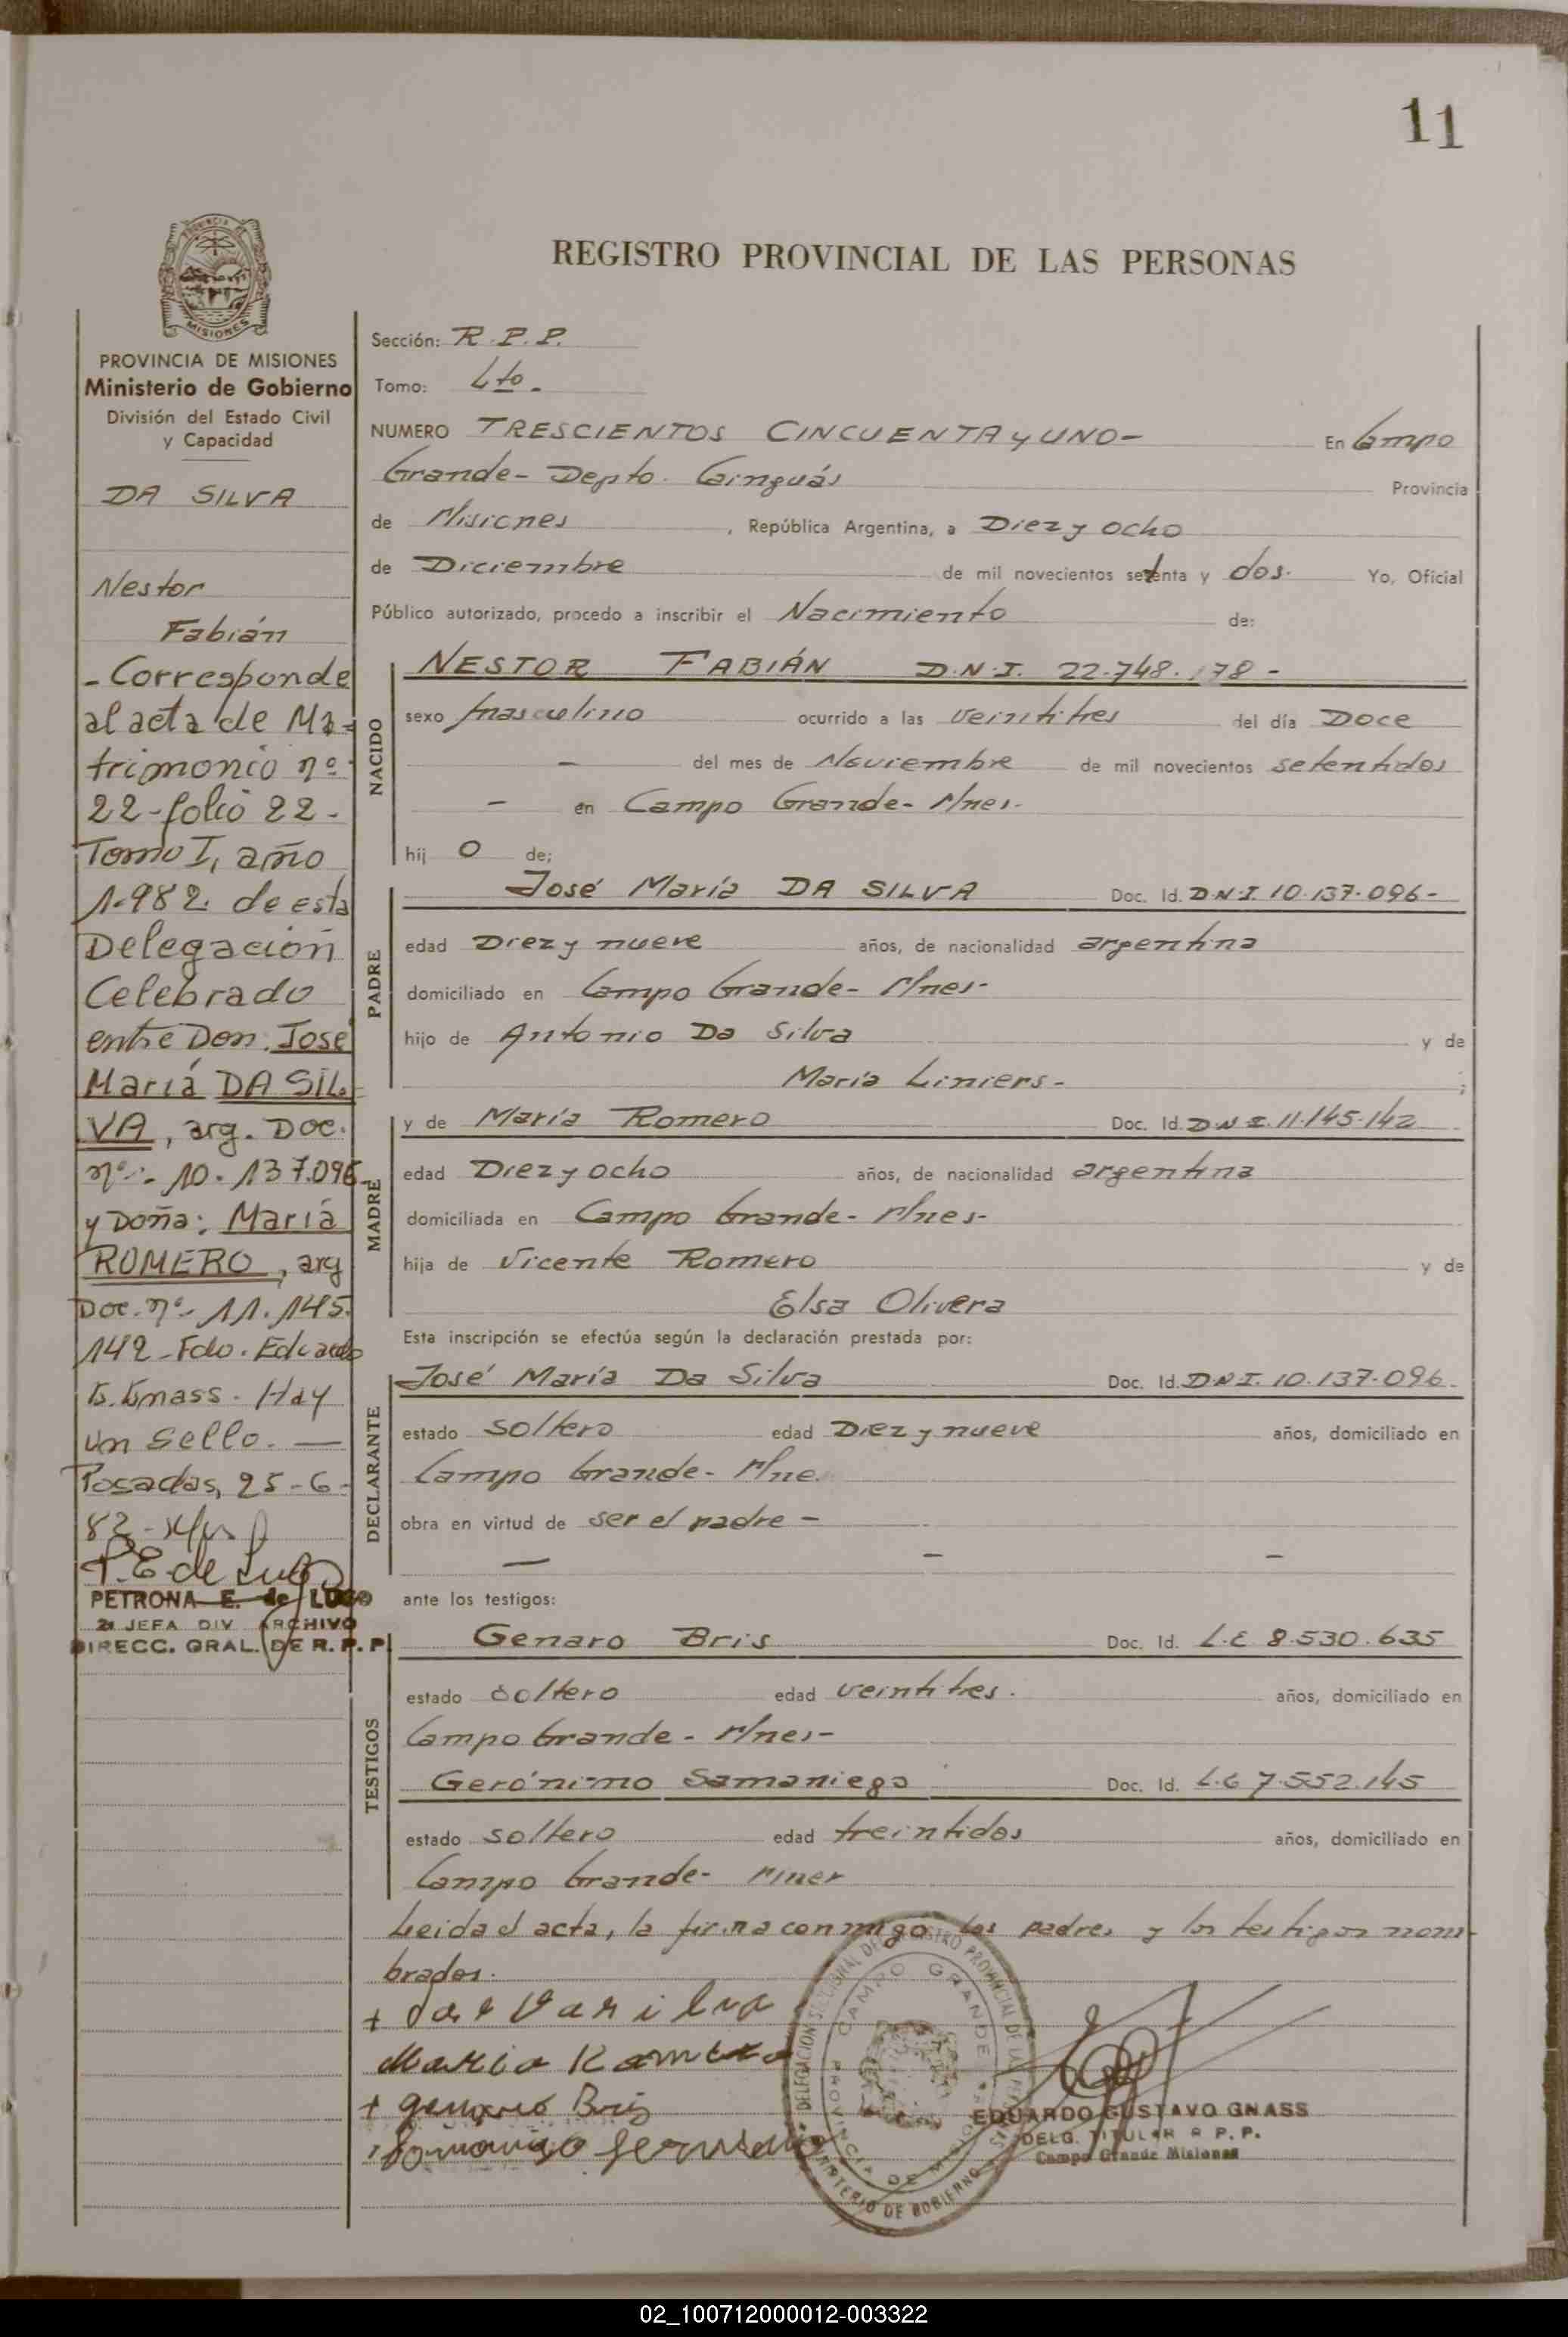 11
REGISTRO PROVINCIAL DE LAS PERSONAS
PROVINCIA DE MISIONES
MISIONES
PROVINCIA DE MISIONES
Ministerio de Gobierno
División del Estado Civil
y Capacidad
DA SILVA
Nestor
Fabián
- Corresponde
al acta de Ma-
trimonio nº
22-folio 22-
Tomo I, año
1.982 de esta
Delegación
Celebrado
entre Don: José
María DA SIL-
VA, arg. Doc.
nº- 10.137.096
y Doña: María
ROMERO, arg
Doc. nº- 11.145.
142-Fdo. Eduardo
G. Gnass. Hay
un sello. —
Posadas, 25-6-
82-
P. E. de Lugo
PETRONA E. de LUGO
JEFA DIV ARCHIVO
DIRECC. GRAL. DE R. P. P.
Sección: R.P.P.
Tomo: 4to-
NUMERO TRESCIENTOS CINCUENTA y UNO- En Campo
Grande- Depto. Cainguás Provincia
de Misiones, República Argentina, a Diez y ocho
de Diciembre de mil novecientos setenta y dos. Yo, Oficial
Público autorizado, procedo a inscribir el Nacimiento de:
NACIDO
NESTOR FABIÁN D.N.I. 22.748.178-
sexo masculino ocurrido a las veintitres del día Doce
- del mes de Noviembre de mil novecientos setentidos
- en Campo Grande- Mnes-
hij o de;
PADRE
José María DA SILVA Doc. Id. D.N.I. 10.137.096-
edad Diez y nueve años, de nacionalidad argentina
domiciliado en Campo Grande- Mnes-
hijo de Antonio Da Silva y de
María Liniers- ;
MADRE
y de María Romero Doc. Id. D.N.I. 11.145.142
edad Diez y ocho años, de nacionalidad argentina
domiciliada en Campo Grande- Mnes-
hija de Vicente Romero y de
Elsa Olivera
Esta inscripción se efectúa según la declaración prestada por:
DECLARANTE
José María Da Silva Doc. Id. D.N.I. 10.137.096-
estado soltero edad Diez y nueve años, domiciliado en
Campo Grande- Mnes
obra en virtud de ser el padre -
— - -
ante los testigos:
TESTIGOS
Genaro Bris Doc. Id. L.E 8.530.635
estado soltero edad veintitres. años, domiciliado en
Campo Grande- Mnes-
Gerónimo Samaniego Doc. Id. L.E 7.552.145
estado soltero edad treintidos años, domiciliado en
Campo Grande- Mnes
Leida el acta, la firma conmigo los padres y los testigos nom-
brados.
+
Maria Romero
+ genaro Bris
DELEGACION SECCIONAL DEL REGISTRO PROVINCIAL DE LAS PERSONAS
CAMPO GRANDE
PROVINCIA DE MISIONES
MINISTERIO DE GOBIERNO
EDUARDO GUSTAVO GNASS
DELG. TITULAR R P. P.
Campo Grande Misiones
02_100712000012-003322